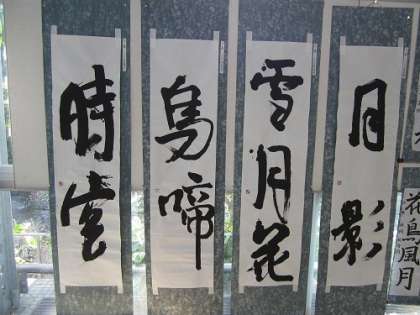 月影
雪月花
烏啼
時雪
花鳥風月